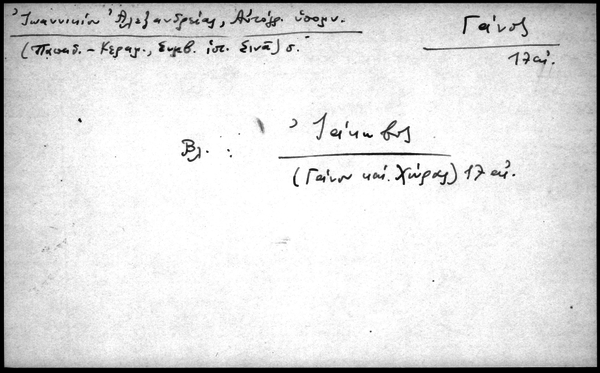 Ἰωαννικίου Ἀλεξανδρείας, Αὐτόγρ. ὑπομν.
(Παπαδ.-Κεραμ., Συμβ. ἱστ. Σινᾶ) σ.
Γάνος
17 αἰ.
Βλ. : Ἰάκωβος
(Γάνου καὶ Χώρας) 17 αἰ.